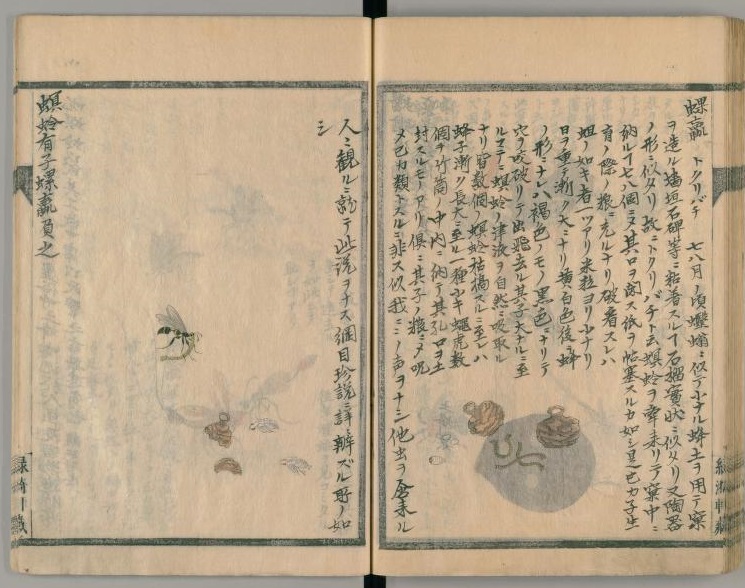 蜾蠃 トクリバチ 七八月ノ頃蠮螉ニ似テ小ナル蜂土ヲ用テ窠
ヲ造ル墻垣石碑等ニ粘着スルヿ石榴實状ニ似タリ又陶器
ノ形ニ似タリ故ニトクリバチト云螟蛉ヲ牽来リテ窠中ニ
納ルヿ七八個ニ〆其口ヲ閉ス紙ヲ帖塞スルカ如シ是己カ子生
育ノ際ノ粮ニ充ルナリ破者スレハ
蛆ノ如キ者一ツアリ米粒ヨリ小ナリ
日ヲ重テ漸ク大ニナリ黄白色後ニ蜂
ノ形ニナレハ褐色ノモノ黒色ニナリテ
穴ヲ咬破リテ出飛去ル其子大ナルニ至
ルマテニ螟蛉ノ津液ヲ自然ニ吸取ル
ナリ皆数個ノ螟蛉枯槁スルニ至レハ
蜂子漸ク長大ニ至ル一種小キ蠅虎数
個ヲ竹筒ノ中内ニ納テ其孔口ヲ土
封スルモノアリ倶ニ其子ノ粮ニ〆呪
〆己カ類トスルニ非ス似我〻〻ノ声ヲナシ他出ヲ
人〻観ルニ就テ此説ヲナス綱目珍説ニ詳ニ辨ズル所ノ如
シ
螟蛉有子蜾蠃負之